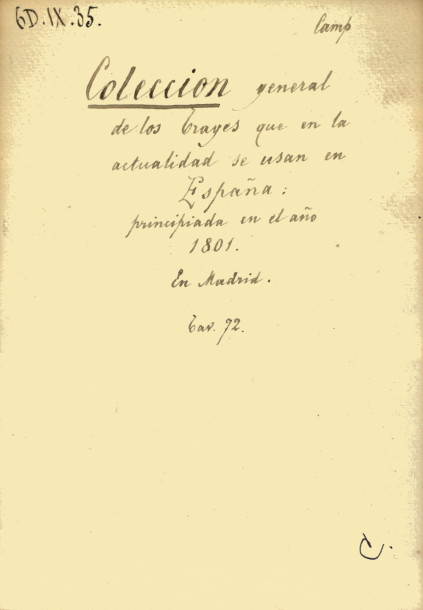 6D.IX.35.
Camp
Coleccion general
de los Trages que en la
actualidad se usan en
España:
principiada en el año
1801.
En Madrid.
Tav. 92.
C.